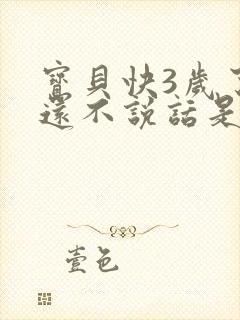 寶貝快3歲了
還不說話是
壹色